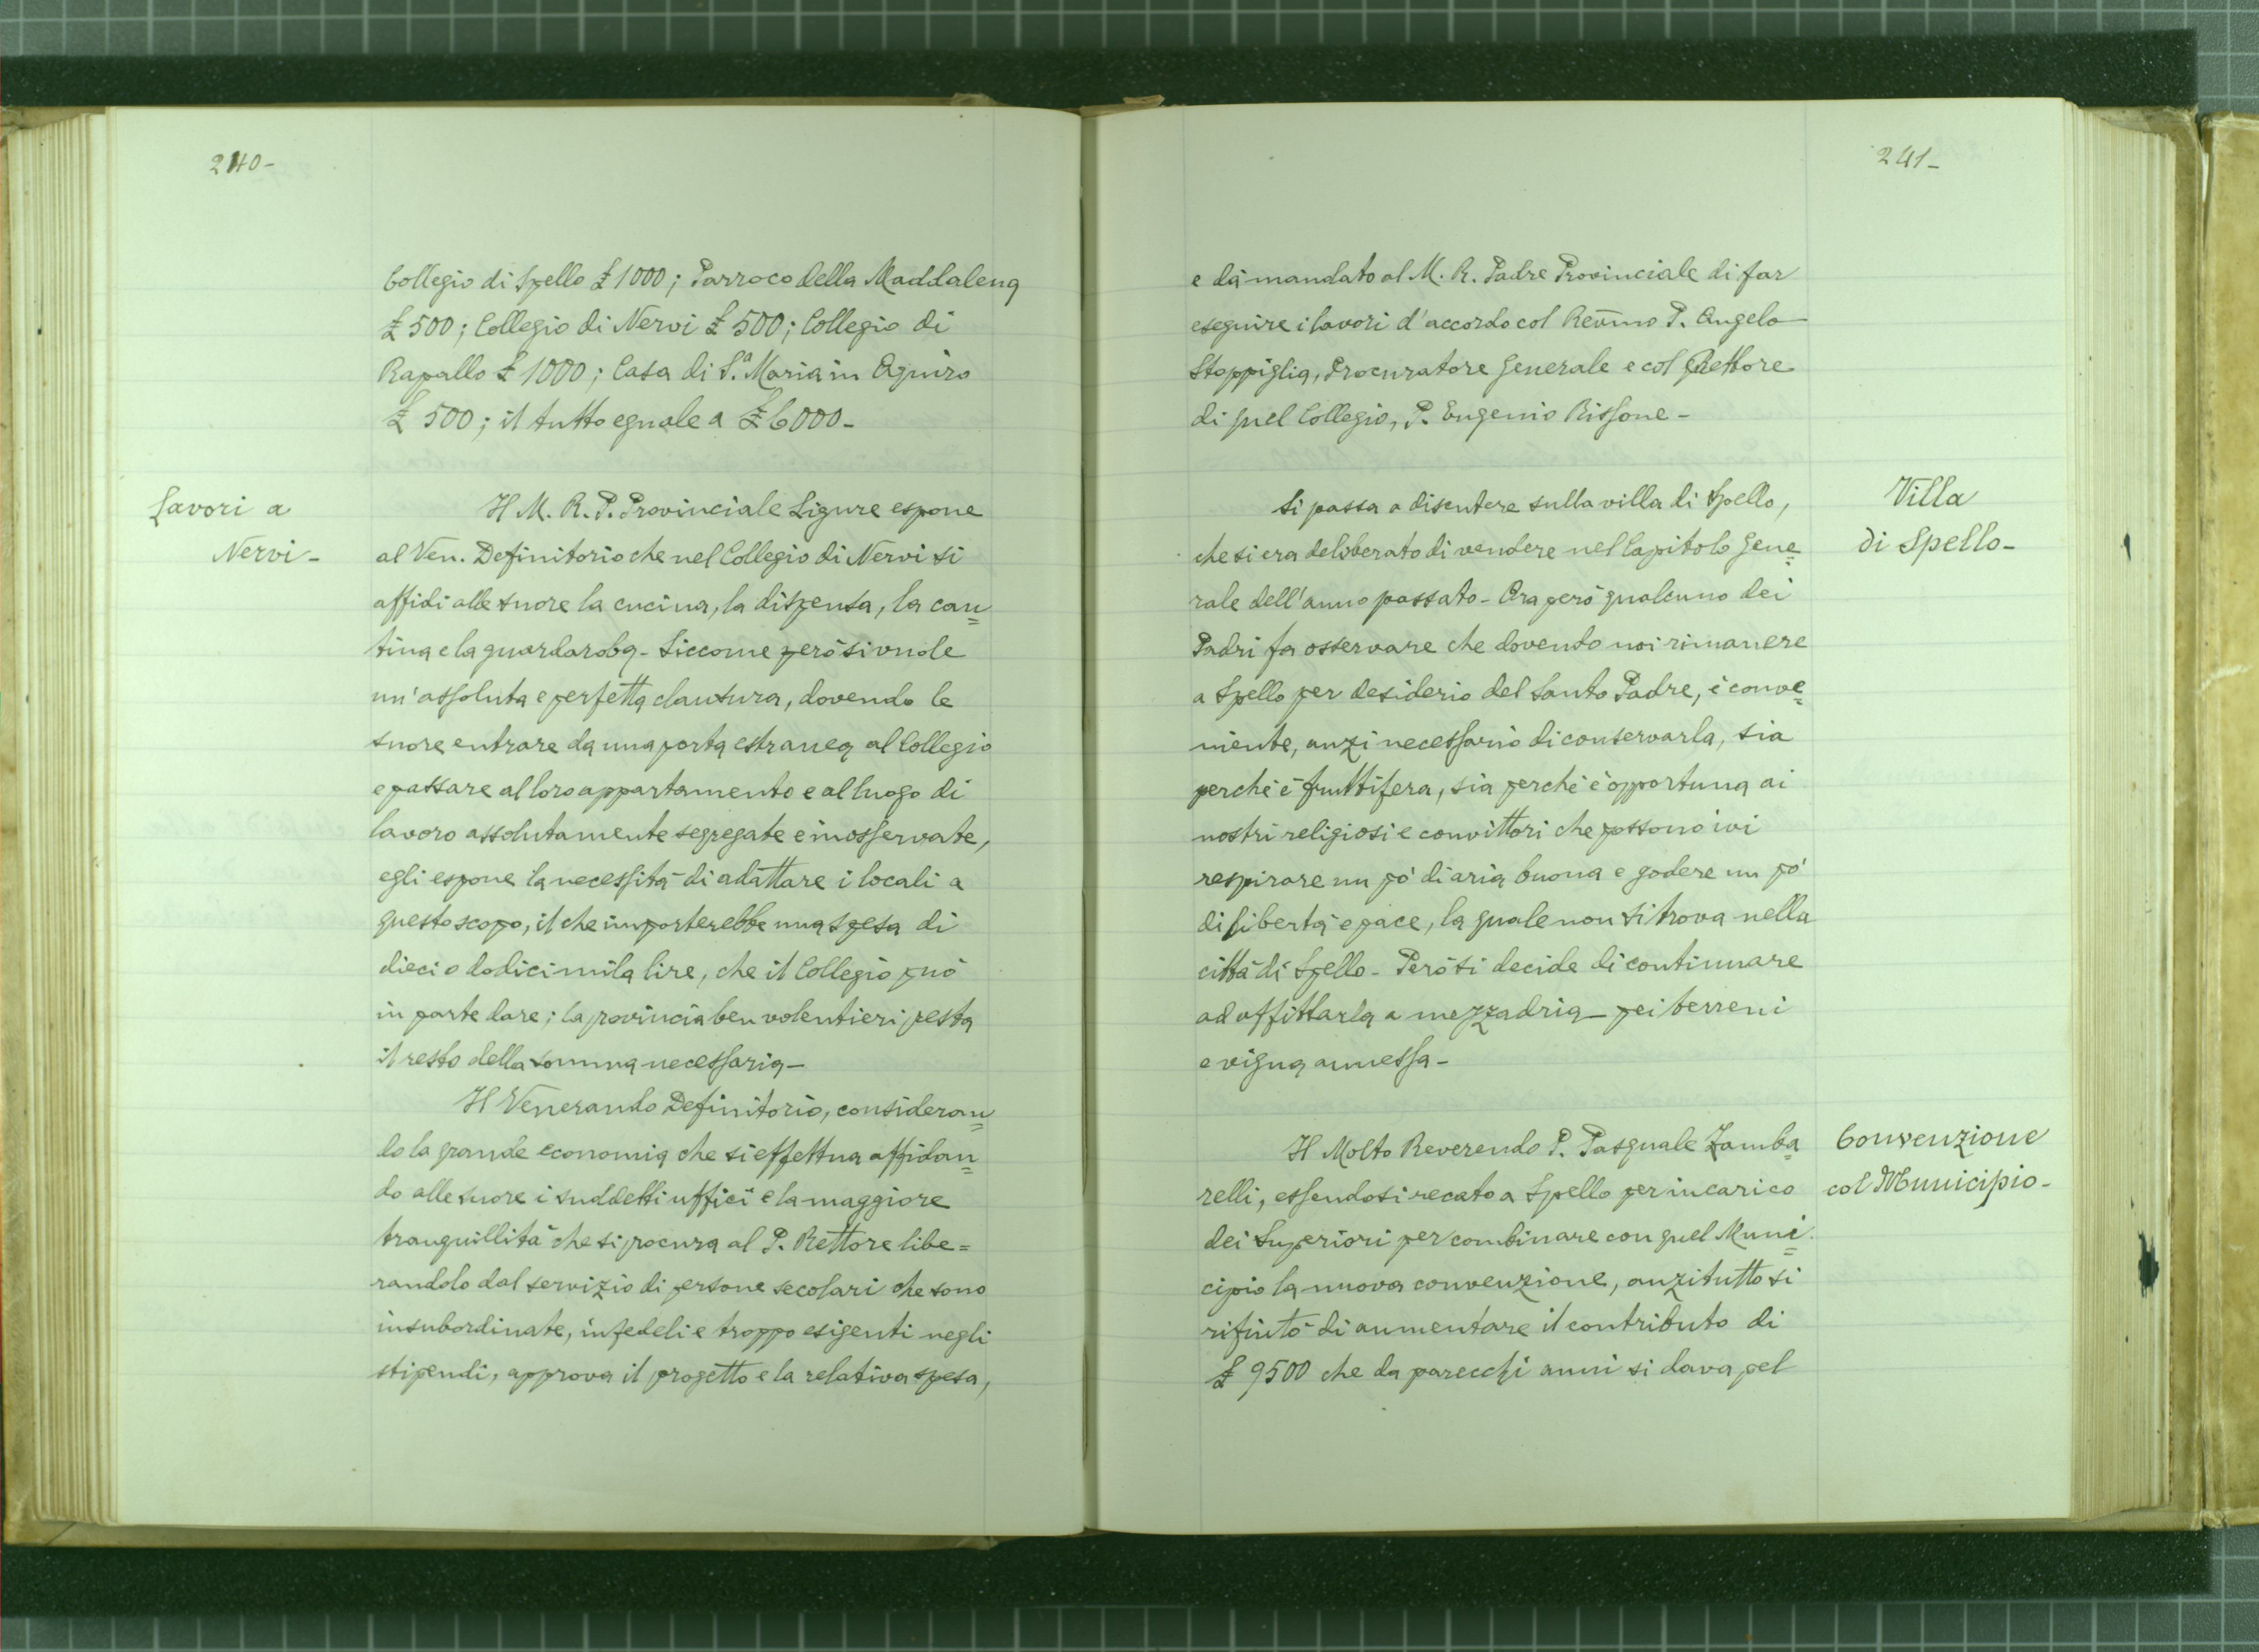 240-
Collegio di Spello £ 1000; Parroco della Maddalena
£ 500; Collegio di Nervi £ 500; Collegio di
Rapallo £ 1000; Casa di S.ª Maria in Aquiro
£ 500; il tutto eguale a £ 6000-
Lavori a
Nervi-
Il M. R. P. Provinciale Ligure espone
al Ven. Definitorio che nel Collegio di Nervi si
affidi alle suore la cucina, la dispensa, la can=
tina e la guardaroba- Siccome però si vuole
un'assoluta e perfetta clausura, dovendo le
suore entrare da una porta estranea al Collegio
e passare al loro appartamento e al luogo di
lavoro assolutamente segregate e inosservate,
egli espone la necessità di adattare i locali a
questo scopo, il che importerebbe una spesa di
dieci o dodici mila lire, che il Collegio può
in parte dare; la provincia ben volentieri presta
il resto della somma necessaria-
Il Venerando Definitorio, consideran=
do la grande economia che si effettua affidan=
do alle suore i suddetti uffici e la maggiore
tranquillità che si procura al P. Rettore libe=
randolo dal servizio di persone secolari che sono
insubordinate, infedeli e troppo esigenti negli
stipendi, approva il progetto e la relativa spesa,
241-
e dà mandato al M. R. Padre Provinciale di far
eseguire i lavori d'accordo col Rev̄mo P. Angelo
Stoppiglia, Procuratore Generale e col Rettore
di quel Collegio, P. Eugenio Rissone-
Villa
di Spello-
Si passa a discutere sulla villa di Spello,
che si era deliberato di vendere nel Capitolo Gene=
rale dell'anno passato- Ora però qualcuno dei
Padri fa osservare che dovendo noi rimanere
a Spello per desiderio del Santo Padre, è conve=
niente, anzi necessario di conservarla, sia
perchè è fruttifera, sia perchè è opportuna ai
nostri religiosi e convittori che possono ivi
respirare un pò di aria buona e godere un pò
di libertà e pace, la quale non si trova nella
città di Spello- Però si decide di continuare
ad affittarla a mezzadria- pei terreni
e vigna annessa-
Convenzione
col Municipio-
Il Molto Reverendo P. Pasquale Zamba=
relli, essendosi recato a Spello per incarico
dei Superiori per combinare con quel Muni=
cipio la nuova convenzione, anzitutto si
rifiutò di aumentare il contributo di
£ 9500 che da parecchi anni si dava pel